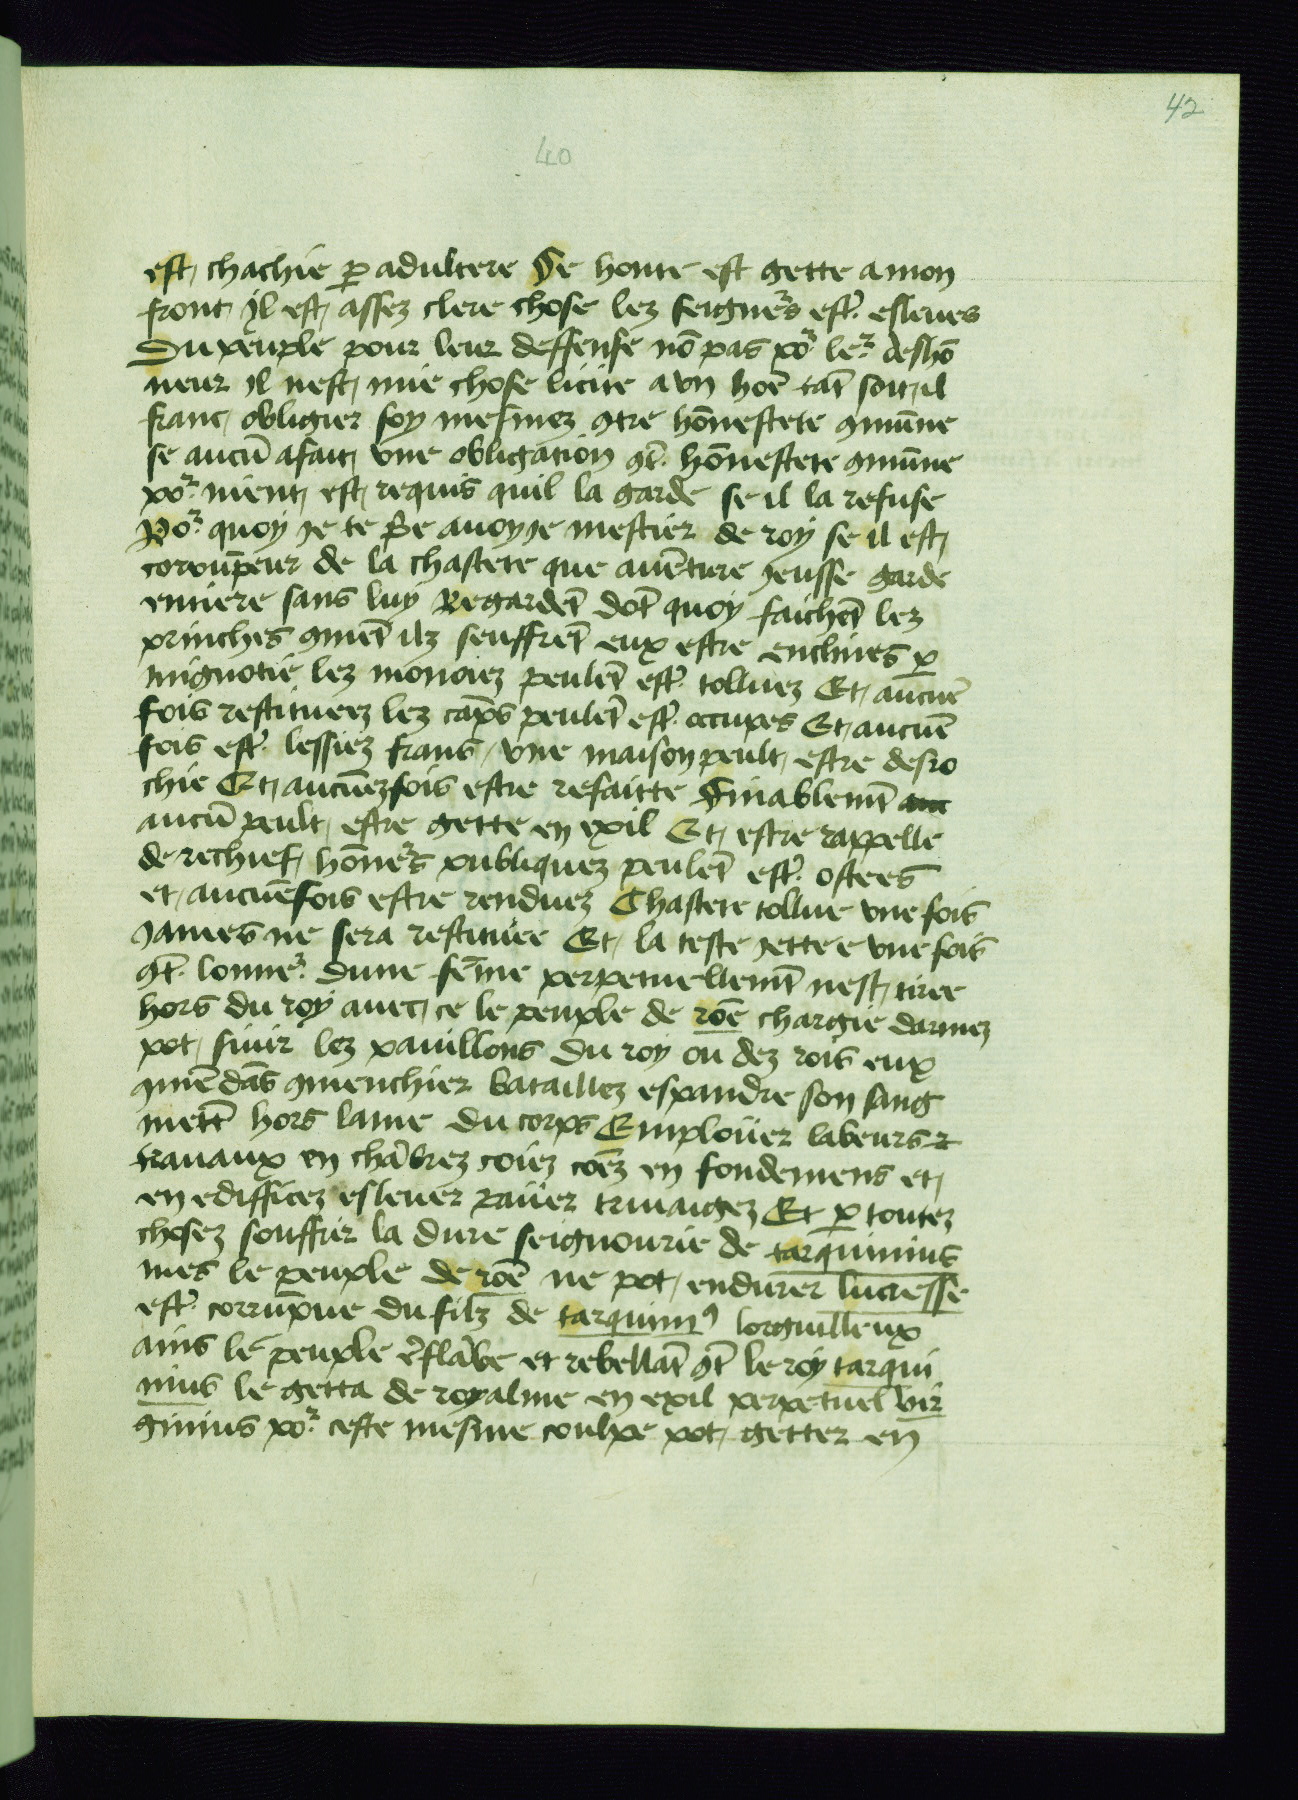 42
40
est chachie ꝑ adultere Se honte est gette a mon
front Jl est assez clere chose lez seigneʳs est̾ esleues
Du peuple pour leur deffense nō pas poʳ leʳ deshō
neur Jl nest mie chose licite a vn hōe tāt soit il
franc obligier soy mesmez ꝯtre hōnestete ꝯmūne
se aucū a fait vne obligation ꝯt̾ hōnestete ꝯmūne
poʳ nient est requis quil la garde se il la refuse
Poʳ quoy je te auoy je mestier de roy se il est
corrūpeur de la chastete que auēture jeusse garde
entiere sans luy Regardēt dōt quoy faichēt lez
princhés ꝯmēt ilz seuffrēt eux estre enclinés ꝑ
mignotie lez monoiez peulēt est̾ tolluez Et aucūe
fois restitueez lez cāps peulēt est̾ occupes Et aucūe
fois est̾ lessiez frans vne maison peult estre desro
chie Et aucūezfois estre refaitte Finablemēt
aucū peult estre gette en exil Et estre rappelle
de rechief hōneʳs publiquez peulēt est̾ ostees
et aucūefois estre renduez Chastete tollue vne fois
james ne sera restituee Et la teste jettee vne fois
ꝯt̾ lonneʳ dune fēme perpetuellemēt nest tiree
hors du roy auec ce le peuple de rōe chargie darmez
pot siuir lez pauillons du roy ou dez rois eux
ꝯmēdās ꝯmenchier bataillez espandre son sang
mettē hors lame du corps Emploüer labeurs ⁊
trauaux en chābrez coiez en fondemens et
en edifficez esleuer Et ꝑ toutez
chosez souffrir la dure seignourie de tarquinius
mes le peuple de rōe ne pot endurer lucresse
est̾ corrūpue du filz de tarquinꝰ lorguilleux
ains le peuple et rebellāt ꝯt̾ le roy tarqui
nius le getta de royalme en exil perpetuel vir
ginius poʳ ceste mesme coulpe pot getter en